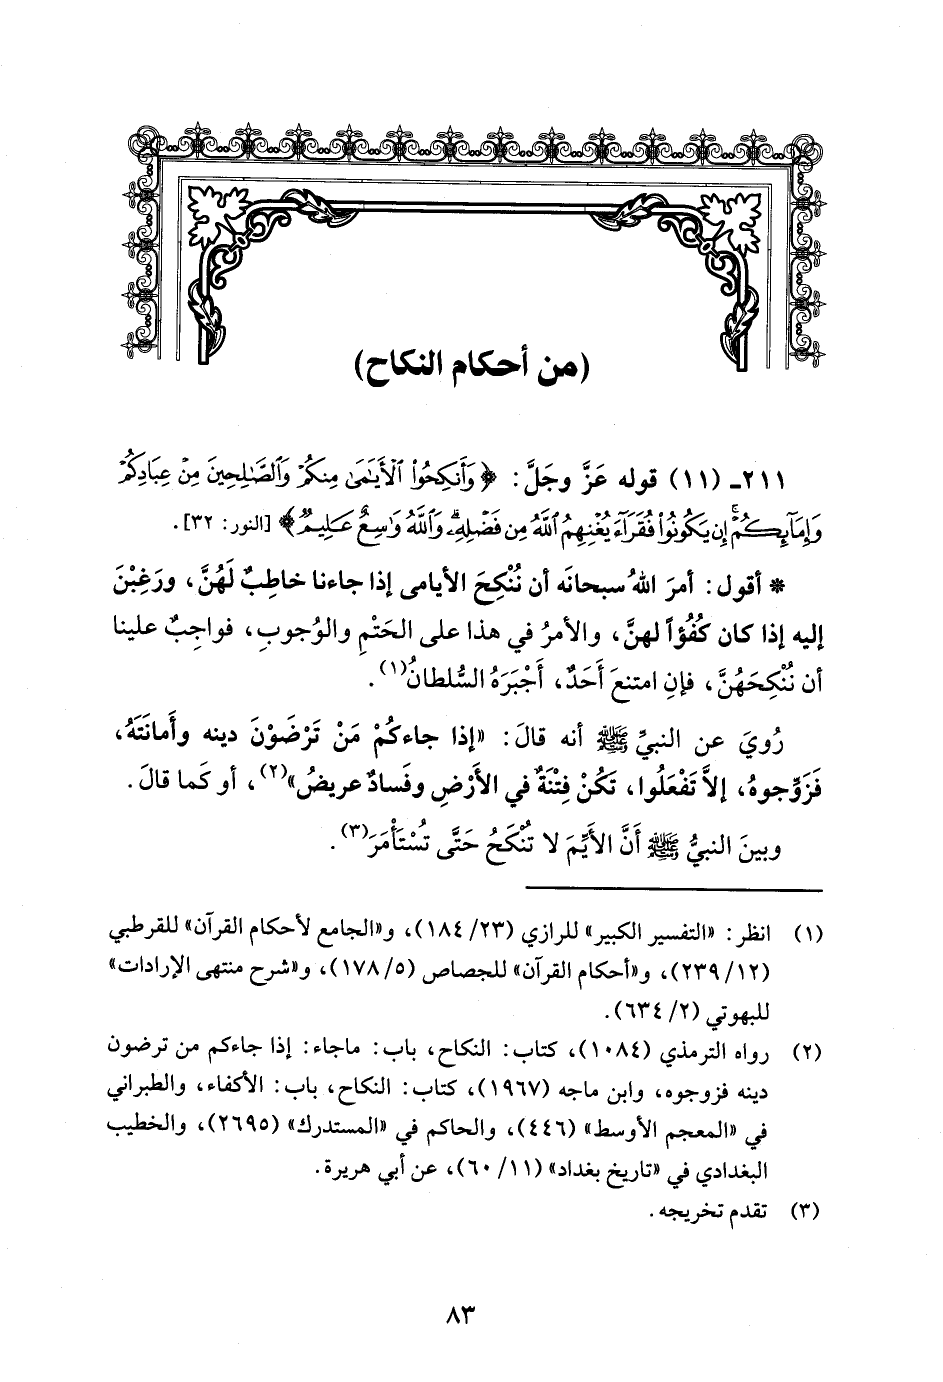 (من أحكام النكاح)
٢١١ـ (١١) قوله عَزَّ وجَلَّ: ﴿وَأَنكِحُوا۟ ٱلْأَيَٰمَىٰ مِنكُمْ وَٱلصَّٰلِحِينَ مِنْ عِبَادِكُمْ
وَإِمَآئِكُمْ ۚ إِن يَكُونُوا۟ فُقَرَآءَ يُغْنِهِمُ ٱللَّهُ مِن فَضْلِهِۦ ۗ وَٱللَّهُ وَٰسِعٌ عَلِيمٌ﴾ [النور: ٣٢].
* أقول: أمرَ اللهُ سبحانَه أن نُنْكِحَ الأيامى إذا جاءنا خاطِبٌ لَهُنَّ، ورَغِبْنَ
إليه إذا كان كُفُؤاً لهنَّ، والأمرُ في هذا على الحَتْمِ والوُجوبِ، فواجِبٌ علينا
أن نُنْكِحَهُنَّ، فإنِ امتنعَ أَحَدٌ، أَجْبَرَهُ السُّلطانُ(١).
رُويَ عن النبيِّ ﷺ أنه قالَ: «إذا جاءكُمْ مَنْ تَرْضَوْنَ دينه وأمانَتَهُ،
فَزَوِّجوهُ، إلاَّ تَفْعَلُوا، تَكُنْ فِتْنَةٌ في الأَرْضِ وفَسادٌ عريضٌ»(٢)، أو كَما قالَ.
وبينَ النبيُّ ﷺ أَنَّ الأَيِّمَ لا تُنْكَحُ حَتَّى تُسْتَأْمَرَ(٣).
(١) انظر: «التفسير الكبير» للرازي (٢٣/ ١٨٤)، و«الجامع لأحكام القرآن» للقرطبي
(١٢/ ٢٣٩)، و«أحكام القرآن» للجصاص (٥/ ١٧٨)، و«شرح منتهى الإرادات»
للبهوتي (٢/ ٦٣٤).
(٢) رواه الترمذي (١٠٨٤)، كتاب: النكاح، باب: ماجاء: إذا جاءكم من ترضون
دينه فزوجوه، وابن ماجه (١٩٦٧)، كتاب: النكاح، باب: الأكفاء، والطبراني
في «المعجم الأوسط» (٤٤٦)، والحاكم في «المستدرك» (٢٦٩٥)، والخطيب
البغدادي في «تاريخ بغداد» (١١/ ٦٠)، عن أبي هريرة.
(٣) تقدم تخريجه.
٨٣